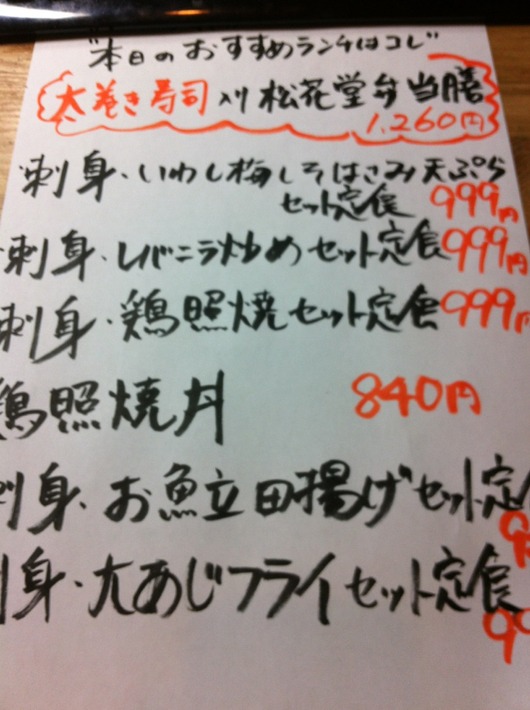 "本日のおすすめランチはコレ"
太巻き寿司入り松花堂弁当膳
1,260円
刺身・いわし梅しそはさみ天ぷら
セット定食 999円
刺身・レバニラ炒めセット定食 999円
刺身・鶏照焼セット定食 999円
鶏照焼丼 840円
刺身・お魚立田揚げセット定
9
刺身・大あじフライセット定食
99